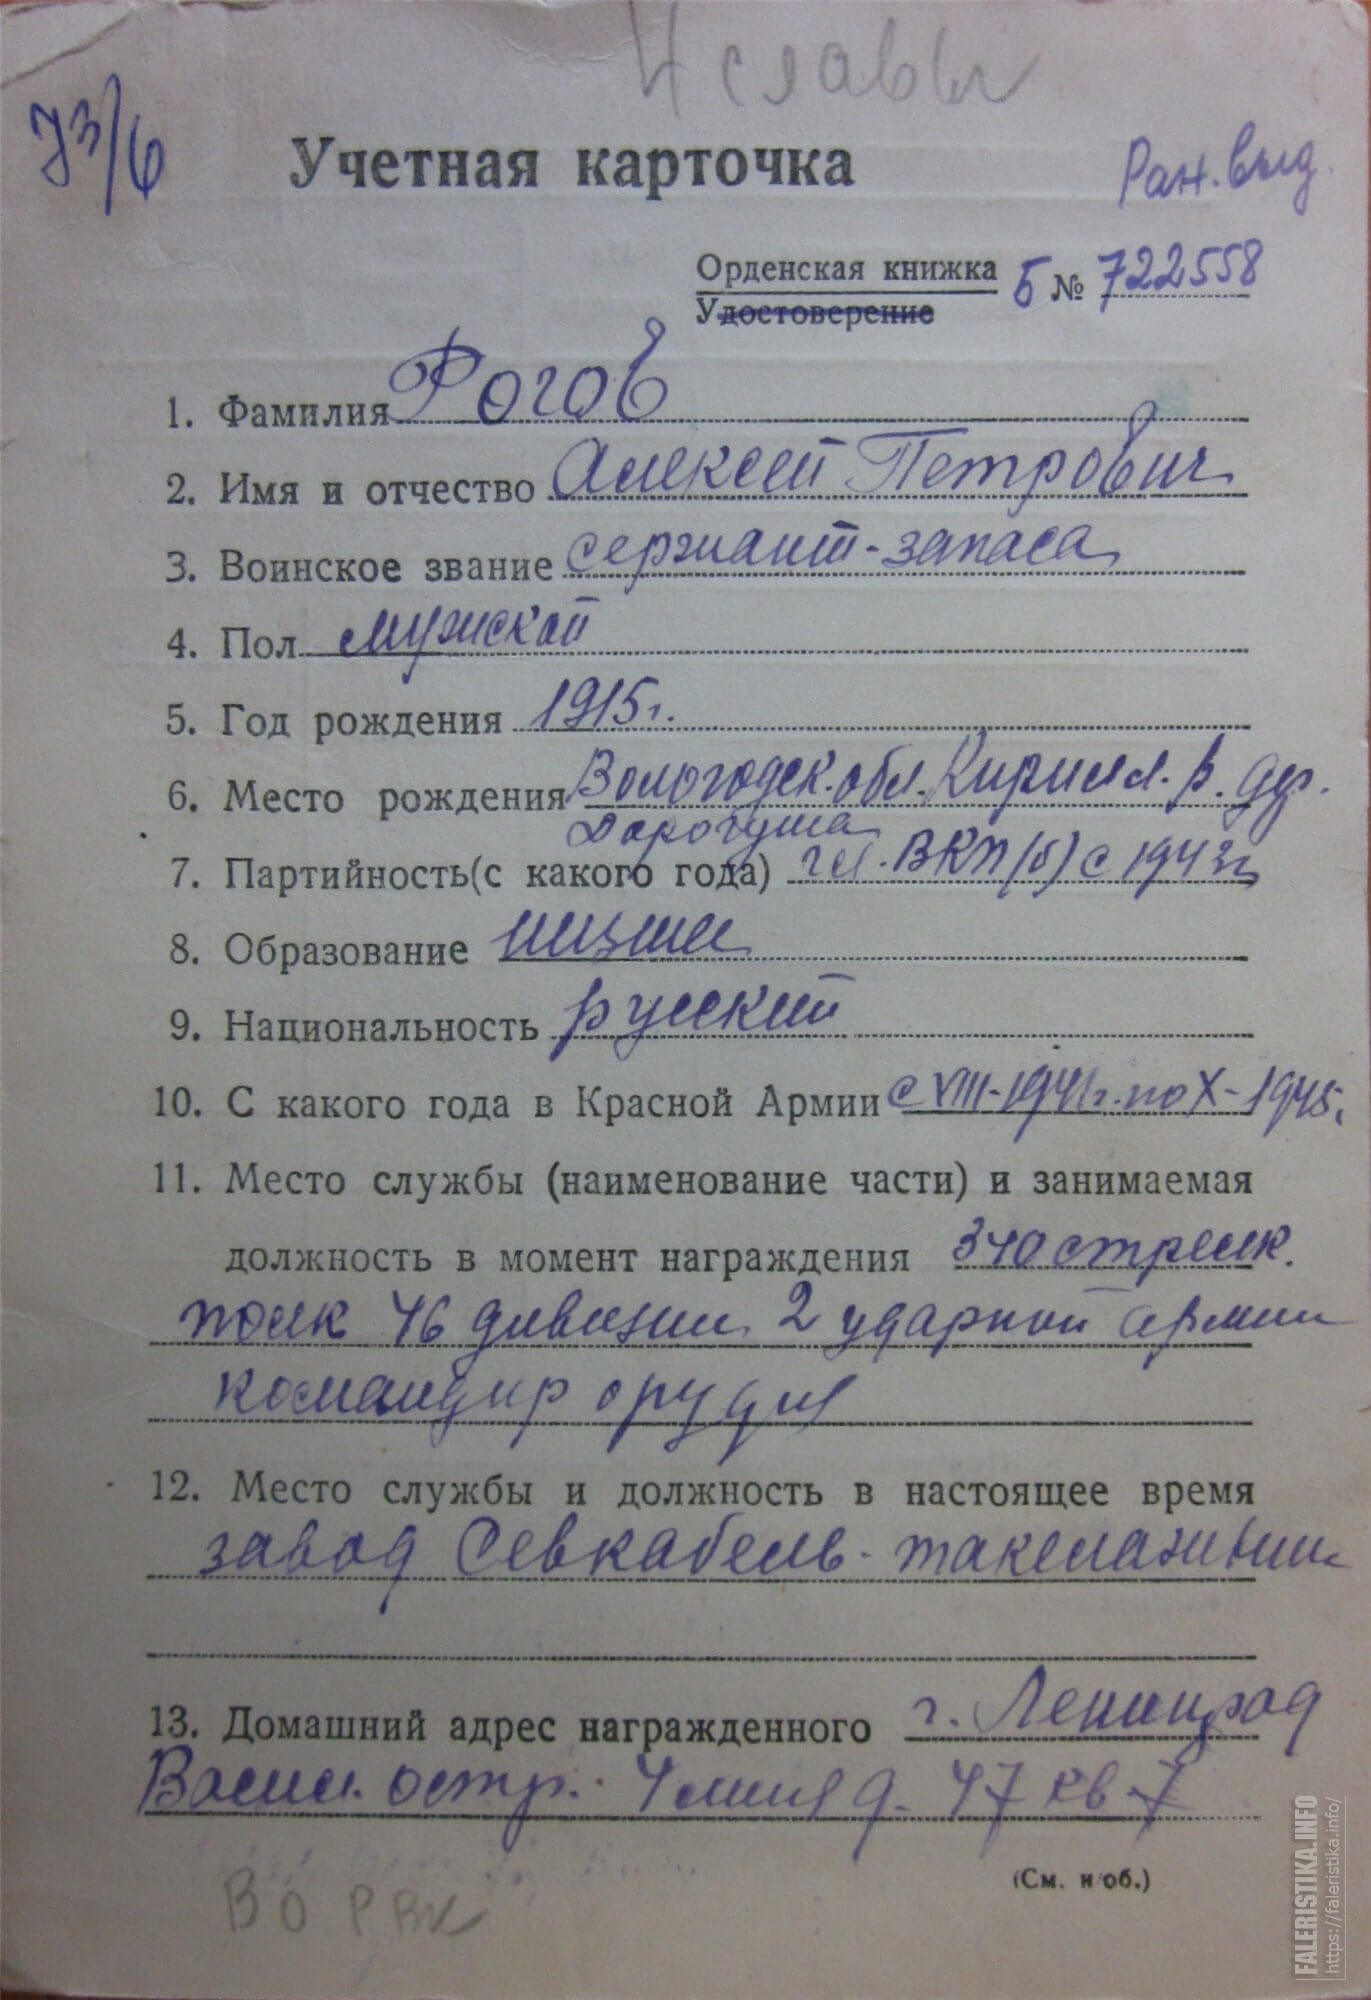 Славы
73/6
Учетная карточка
Ран. выд.
Орденская книжка Б № 722558
Удостоверение
1. Фамилия Рогов
2. Имя и отчество Алексей Петрович
3. Воинское звание сержант-запаса
4. Пол мужской
5. Год рождения 1915г.
6. Место рождения Вологодск. обл. Кирилл. р. дер.
Дорогуша
7. Партийность(с какого года) чл. ВКП(б) с 1943г
8. Образование низшее
9. Национальность русский
10. С какого года в Красной Армии с VIII-1941г. по X-1945.
11. Место службы (наименование части) и занимаемая
должность в момент награждения 340 стрелк.
полк 46 дивизии 2 ударной армии
командир орудия
12. Место службы и должность в настоящее время
завод Севкабель-такелажник
13. Домашний адрес награжденного г. Ленинград
Васил. остр. 4 линия д. 47 кв 7
(См. н/об.)
ВО РВК
FALERISTIKA.INFO
https://faleristika.info/